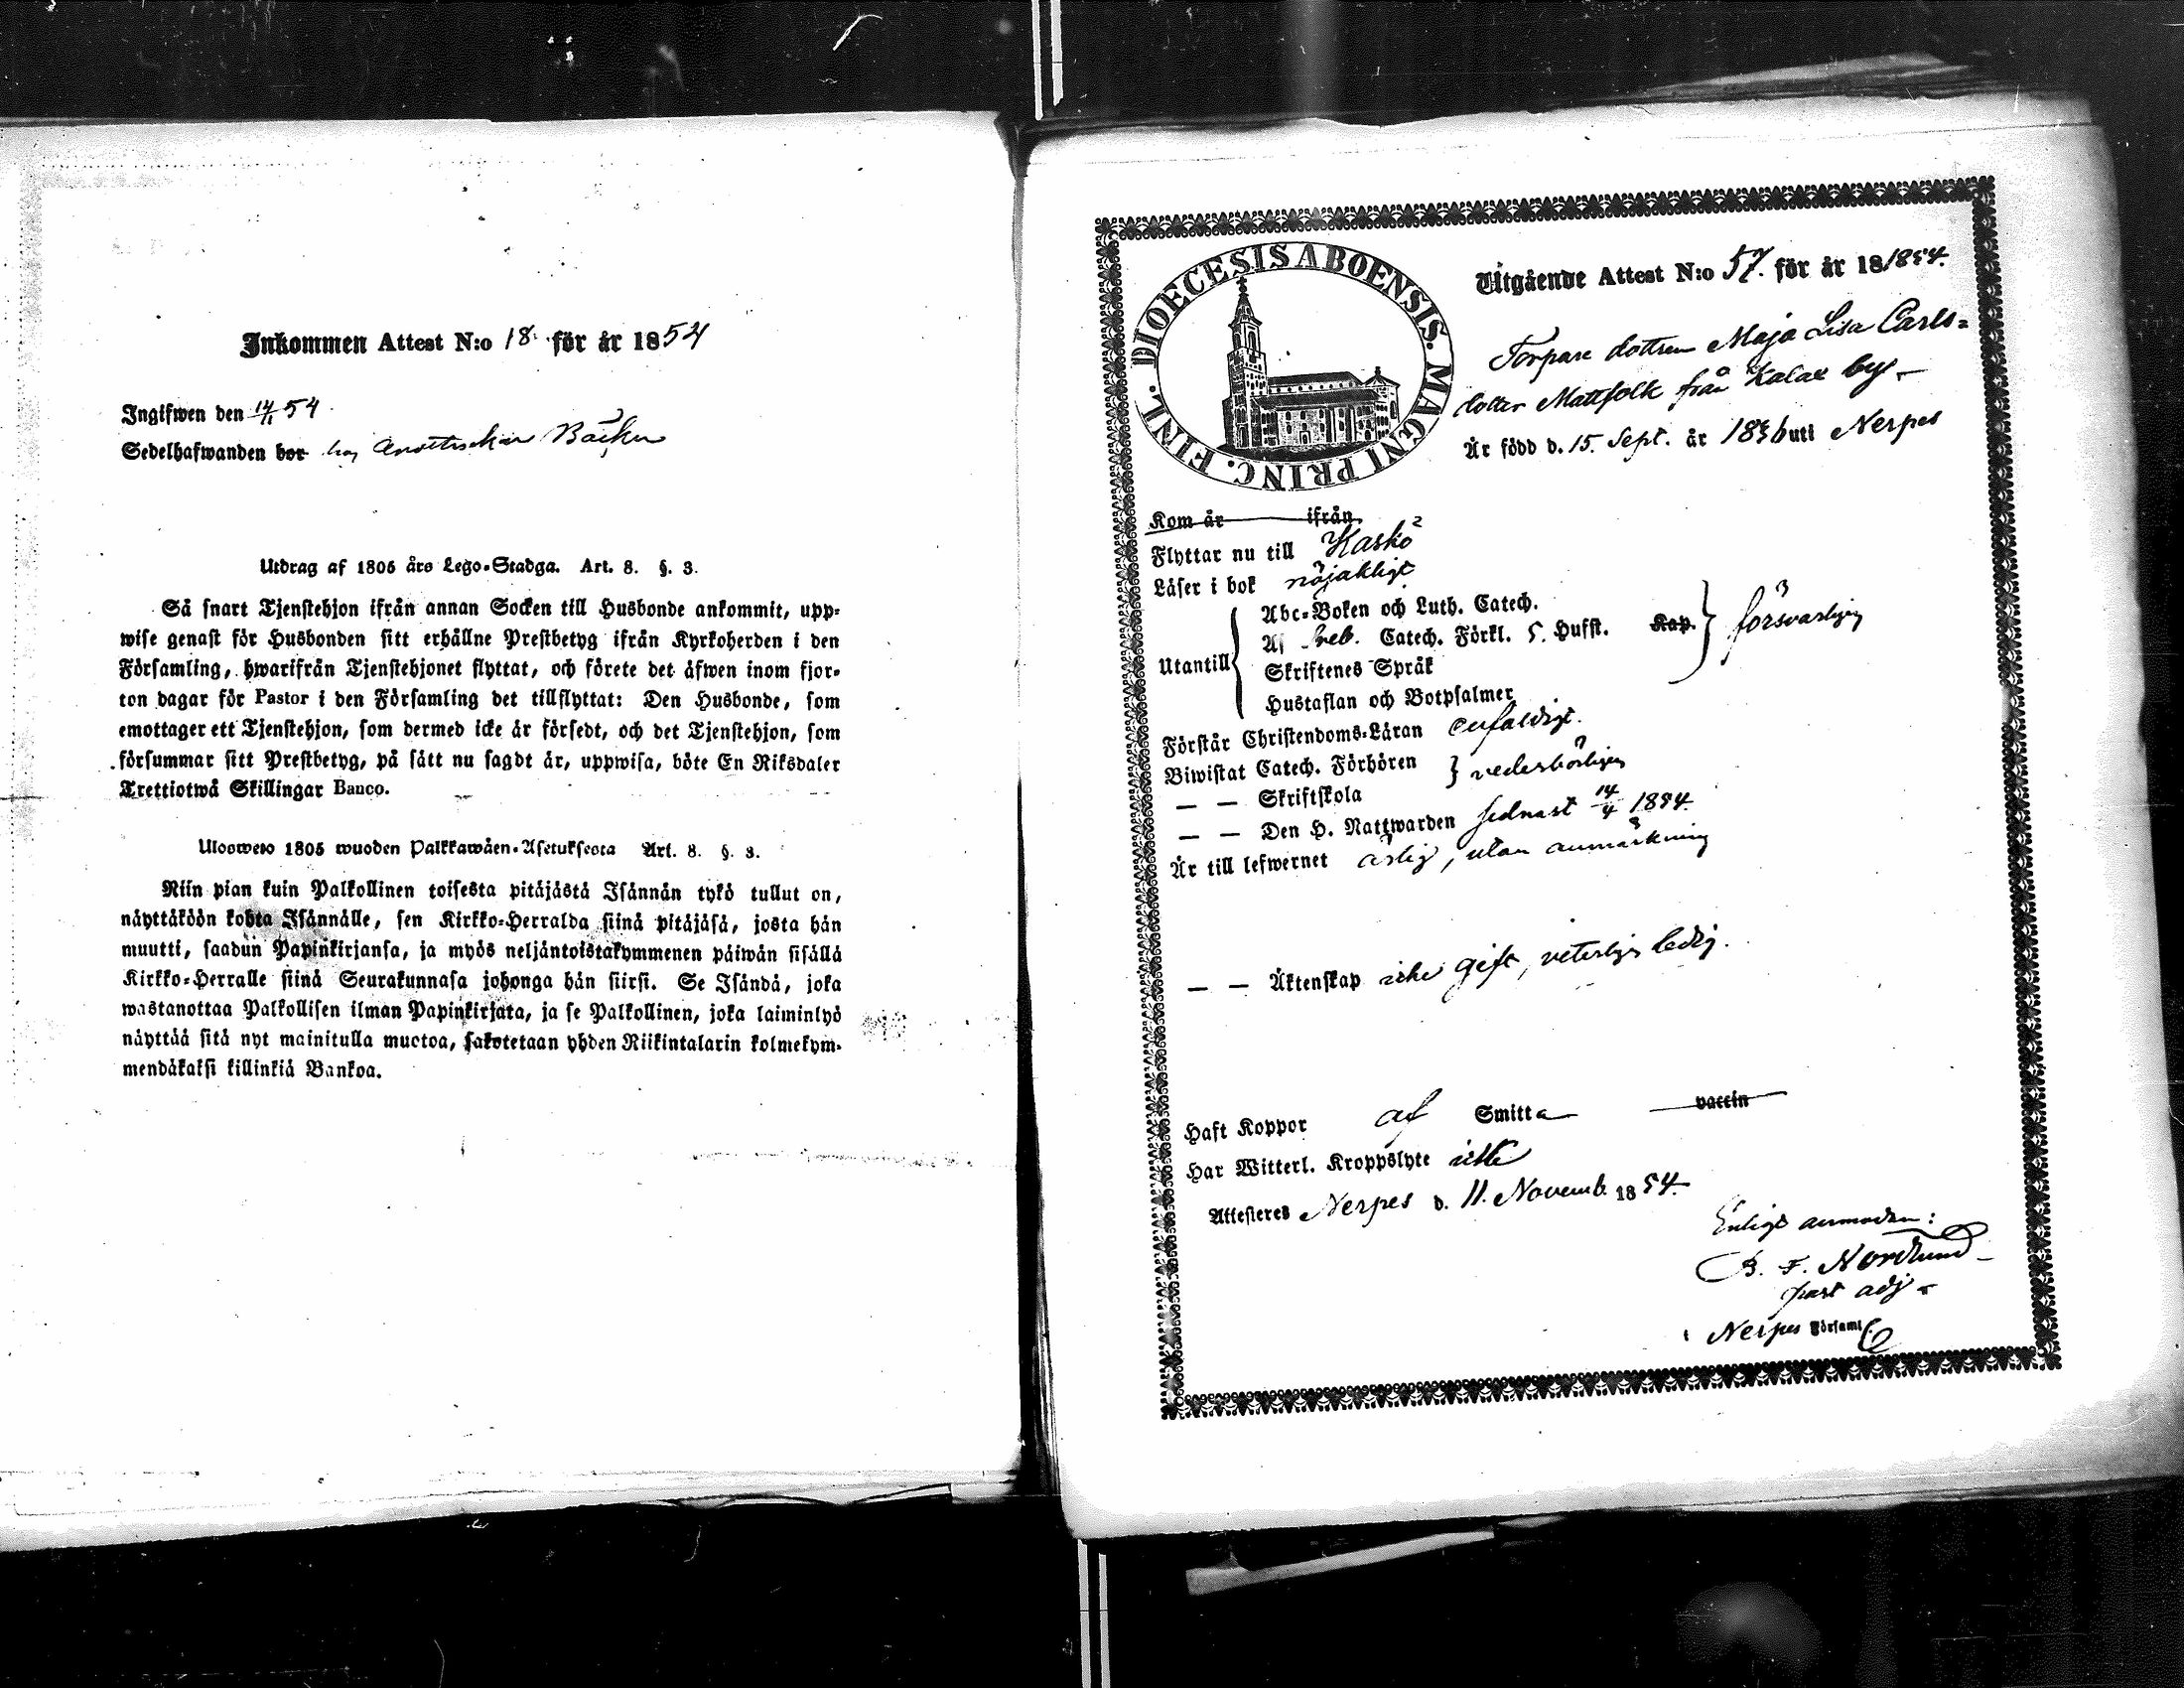 Inkommen Attest N:o 18 för år 1854
Ingifwen den 14/11 54
Sedelhafwanden bor hos Bäcker
Utdrag af 1805 års Lego-Stadga. Art. 8. §. 3.
Så snart Tjenstehjon ifrån annan Socken till Husbonde ankommit, upp-
wise genast för Husbonden sitt erhållne Prestbetyg ifrån Kyrkoherden i den
Församling, hwarifrån Tjenstehjonet flyttat, och förete det äfwen inom fjor-
ton dagar för Pastor i den Församling det tillflyttat: Den Husbonde, som
emottager ett Tjenstehjon, som dermed icke är försedt, och det Tjenstehjon, som
försummar sitt Prestbetyg, på sätt nu sagdt är, uppwisa, böte En Riksdaler
Trettiotwå Skillingar Banco.
Ulosweto 1805 wuoden Palkkawäen-Asetuksesta Art. 8. §. 3.
Niin pian kuin Palkollinen toisesta pitäjästä Isännän tykö tullut on,
näyttäköön kohta Isännälle, sen Kirkko-Herralda siinä pitäjäsä, josta hän
muutti, saadun Papinkirjansa, ja myös neljäntoistakymmenen päiwän sisällä
Kirkko-Herralle siinä Seurakunnasa johonga hän siirsi. Se Isändä, joka
wastanottaa Palkollisen ilman Papinkirjata, ja se Palkollinen, joka laiminlyö
näyttää sitä nyt mainitulla muotoa, sakotetaan yhden Riikintalarin kolmekym-
mendäkaksi killinkiä Bankoa.
DIOECESIS ABOENSIS. MAGNI PRINC. FINL.
Utgående Attest N:o 57. för år 18 1854.
Torpare dottren Maja Lisa Carls-
dotter Mattfolk från Kalax by
Är född d. 15. Sept. år 1836 uti Nerpes
Kom år ifrån
Flyttar nu till Kaskö
Läser i bok nöjaktligt
Utantill
Abc-Boken och Luth. Catech.
Af Sveb. Catech. Förkl. 5. Hufst. Kap. försvarligen
Skriftenes Språk
Hustaflan och Botpsalmer
Förstår Christendoms-Läran enfaldigt.
Biwistat Catech. Förhören vederbörligen
— — Skriftskola
— — Den H. Nattwarden sednast 14/4 1854.
Är till lefwernet ärlig, utan anmärkning
— — Äktenskap icke gift, veterligen ledig.
Haft Koppor af Smitta vaccin
Har Witterl. Kroppslyte icke
Attesteres Nerpes d. 11. Novemb. 1854.
Enligt anmodan:
B. F. Nordlund
past adj
i Nerpes Församl.